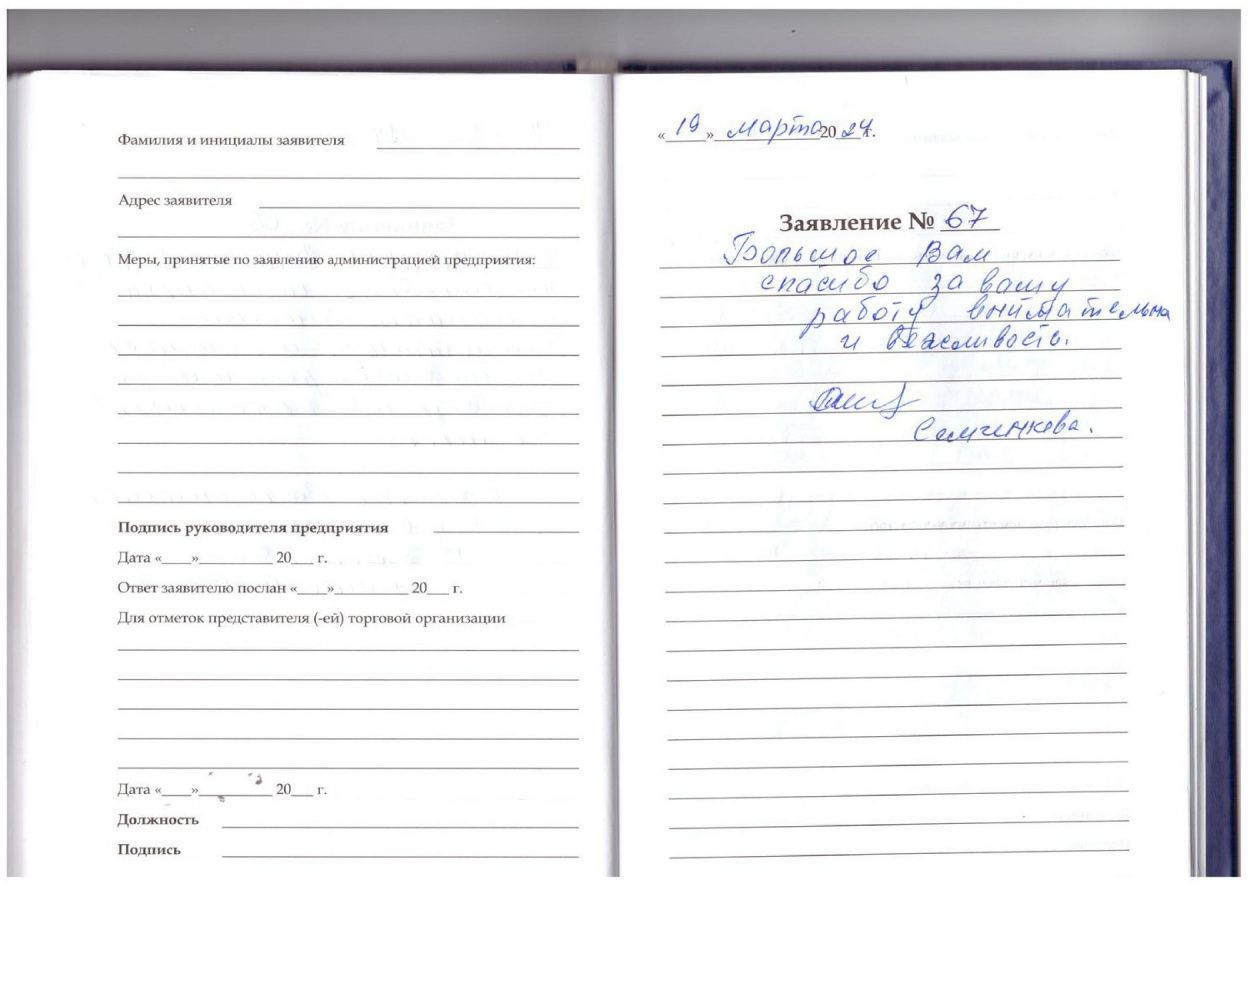 Фамилия и инициалы заявителя
Адрес заявителя
Меры, принятые по заявлению администрацией предприятия:
Подпись руководителя предприятия
Дата «____»__________ 20___ г.
Ответ заявителю послан «____»__________ 20___ г.
Для отметок представителя (-ей) торговой организации
Дата «____»__________ 20___ г.
Должность
Подпись
«19» марта 2024 г.
Заявление № 67
Большое Вам
спасибо за вашу
работу внимательна
и вежливость.
Семченкова.